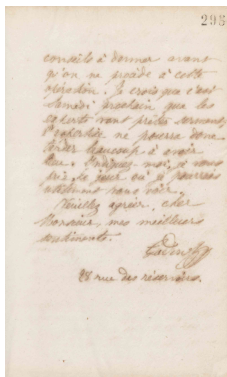 298
conseils à donner avant
qu'on ne procède à cette
opération. Je crois que c'est
Samedi prochain que les
experts vont prêter serment,
ne pourra donc
tarder beaucoup à avoir
lieu. Indiquez-moi, je vous
prie, le jour où je pourrais
vous voir.
Veuillez agréer, cher
Monsieur, mes meilleurs
sentiments.
28 rue des réservoirs.